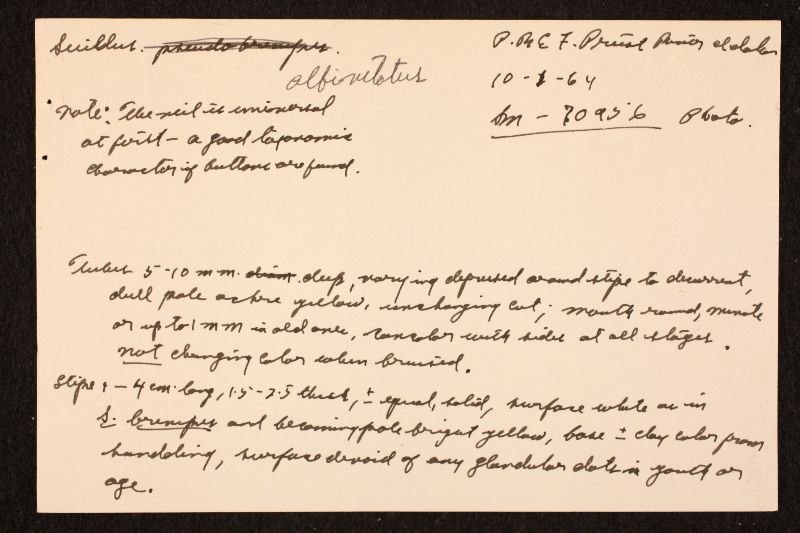 Suillus pseudobrevipes.
albivelatus
P.R.E.F. Priest River Idaho
10-1-64
Sm - 70956 Photo.
Note: The veil is universal
at first - a good taxonomic
character if buttons are found.
Tubes 5-10 mm diam deep, varying depressed around stipe to decurrent,
dull pale ochre yellow, unchanging cut; mouth round, minute
or up to 1 mm in old one, concolor with sides at all stages.
not changing color when bruised.
Stipe: - 4 cm long, 1.5-2.5 thick, ± equal, solid, surface white as in
S. brevipes and becoming pale bright yellow, base ± clay color from
handling, surface devoid of any glandular dots in youth or
age.